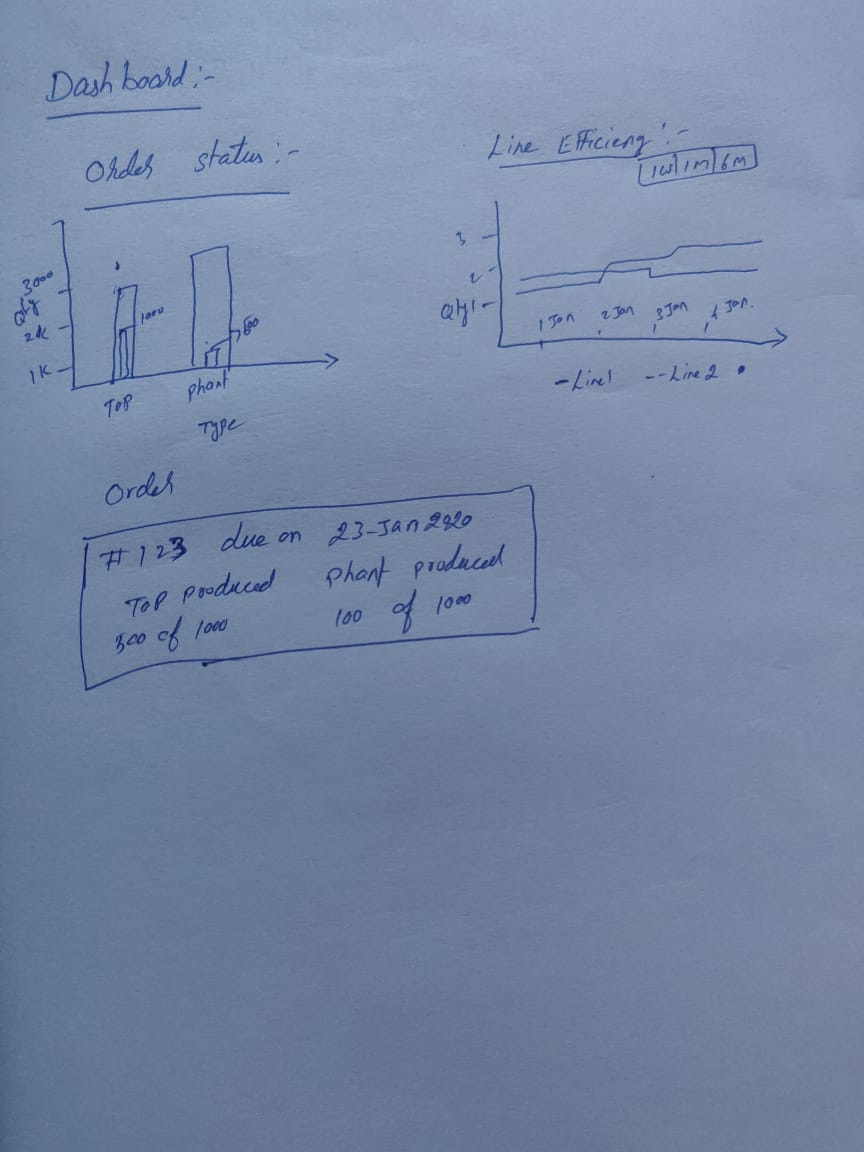 Dashboard :-
Order status :-
3000
Qty
2K
1K
1000
500
Top
Phant
Type
Line Efficieng :-
1W 1M 6M
3
2
Qty 1
1 Jan 2 Jan 3 Jan 4 Jan.
- Line1 -- Line 2
Order
#123 due on 23-Jan 2020
Top produced Phant produced
300 of 1000 100 of 1000